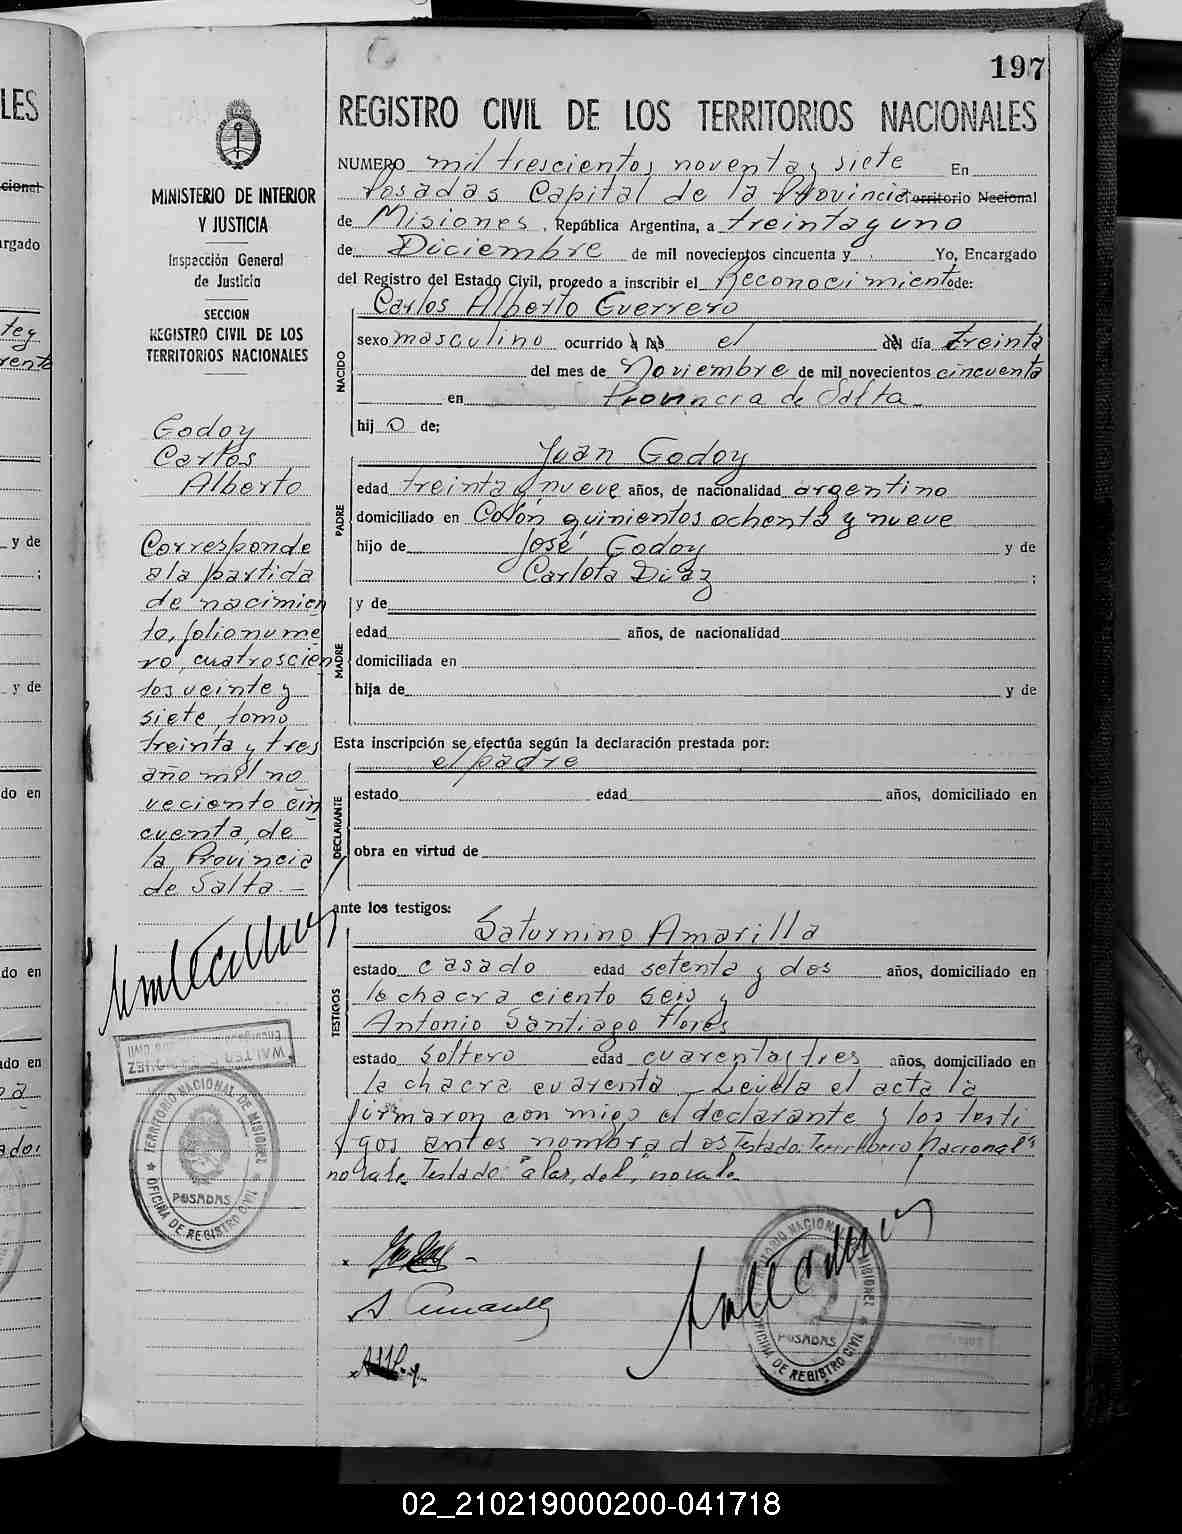 197
REGISTRO CIVIL DE LOS TERRITORIOS NACIONALES
MINISTERIO DE INTERIOR
Y JUSTICIA
Inspección General
de Justicia
SECCION
REGISTRO CIVIL DE LOS
TERRITORIOS NACIONALES
Godoy
Carlos
Alberto
Corresponde
a la partida
de nacimien
to, folio nume
ro, cuatroscien
tos veinte y
siete, tomo
treinta y tres
año mil no
veciento cin
cuenta, de
la Provincia
de Salta. —
TERRITORIO NACIONAL DE MISIONES
POSADAS
OFICINA DE REGISTRO CIVIL
NUMERO mil trescientos noventa y siete En
Posadas Capital de la Provincia Territorio Nacional
de Misiones, República Argentina, a treinta y uno
de Diciembre de mil novecientos cincuenta y Yo, Encargado
del Registro del Estado Civil, procedo a inscribir el Reconocimiento de:
Carlos Alberto Guerrero
NACIDO
sexo masculino ocurrido a las el del día treinta
del mes de Noviembre de mil novecientos cincuenta
en Provincia de Salta.
hij o de;
Juan Godoy
PADRE
edad treinta y nueve años, de nacionalidad argentino
domiciliado en Colón quinientos ochenta y nueve
hijo de José Godoy y de
Carlota Diaz ;
MADRE
y de
edad años, de nacionalidad
domiciliada en
hija de y de
Esta inscripción se efectúa según la declaración prestada por:
el padre
DECLARANTE
estado edad años, domiciliado en
obra en virtud de
ante los testigos:
Saturnino Amarilla
TESTIGOS
estado casado edad setenta y dos años, domiciliado en
la chacra ciento seis y
Antonio Santiago Flores
estado soltero edad cuarenta y tres años, domiciliado en
la chacra cuarenta. Leida el acta la
firmaron con migo el declarante y los testi
gos antes nombrados Testado: Territorio Nacional
no vale. Testado: "a las, del," no vale
TERRITORIO NACIONAL DE MISIONES
POSADAS
OFICINA DE REGISTRO CIVIL
02_210219000200-041718